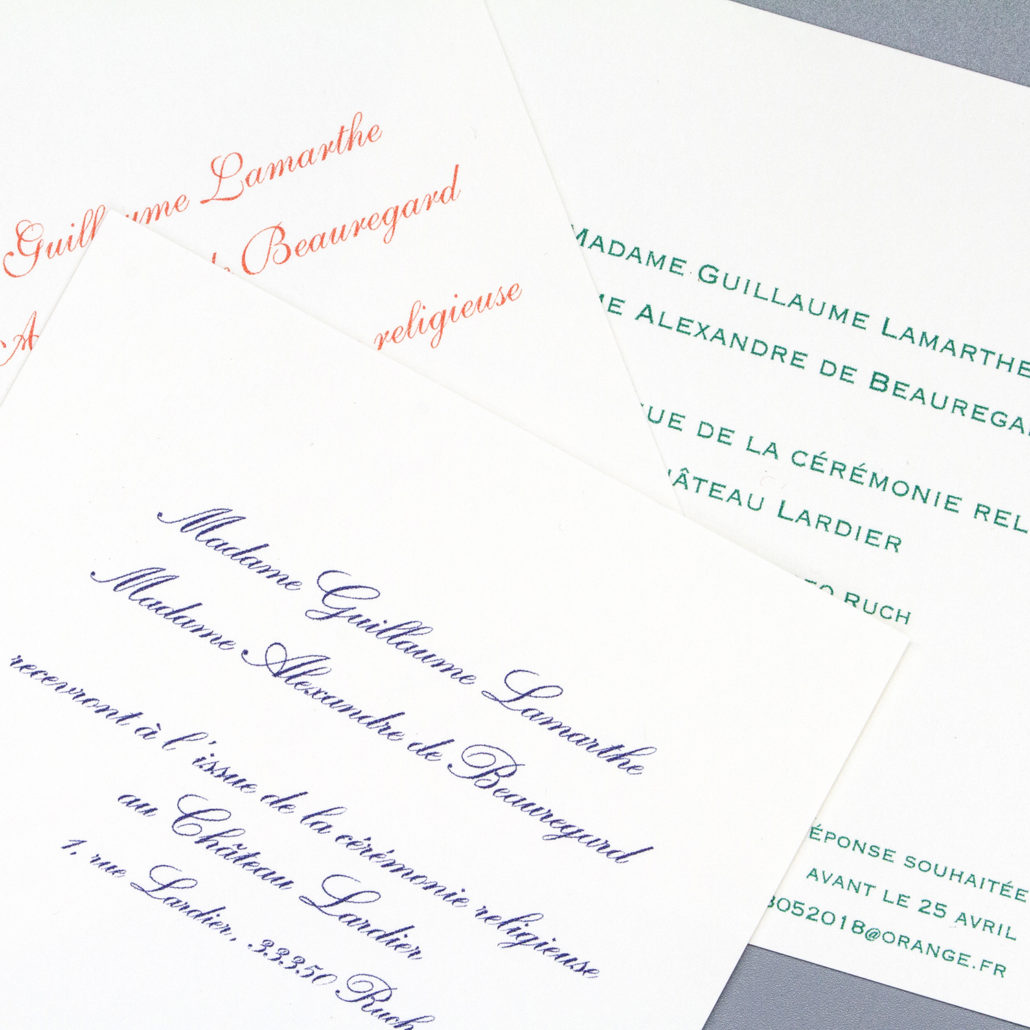 Lamarthe
Beauregard
religieuse
MADAME GUILLAUME LAMARTHE
ALEXANDRE DE
DE LA CÉRÉMONIE
LARDIER
RUCH
SOUHAITÉE
AVANT LE 25 AVRIL
3052018@ORANGE.FR
Madame Guillaume Lamarthe
Madame Alexandre de Beauregard
recevront à l'issue de la cérémonie religieuse
au Château Lardier
1, rue Lardier, 33350 Ruch